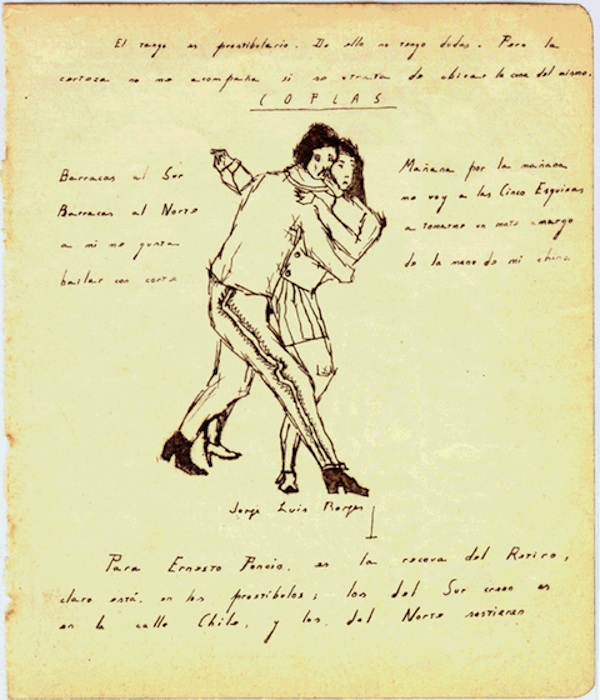 El tango es prostibulario. De ello no tengo dudas. Pero la
certeza no me acompaña si se trata de ubicar la cosa del mismo.
COPLAS
Barracas al Sur
Barracas al Norte
a mi me gusta
bailar con corte
Mañana por la mañana
me voy a las Cinco Esquinas
a tomarme un mate amargo
de la mano de mi china
Jorge Luis Borges
Para Ernesto Poncio, es la recova del Retiro,
claro está, en los prostíbulos; los del Sur creen es
en la calle Chile, y los del Norte sostienen